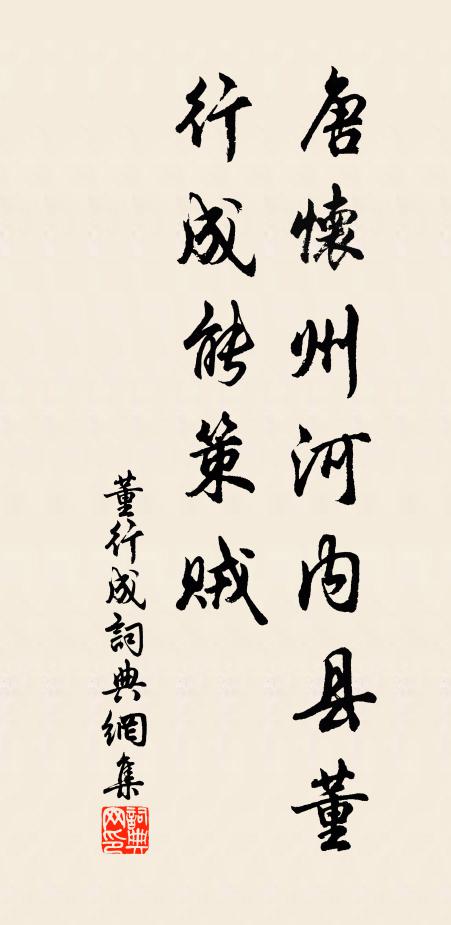 唐懷州河内县董
行成能策贼
董行成詞典網集
詞典网印